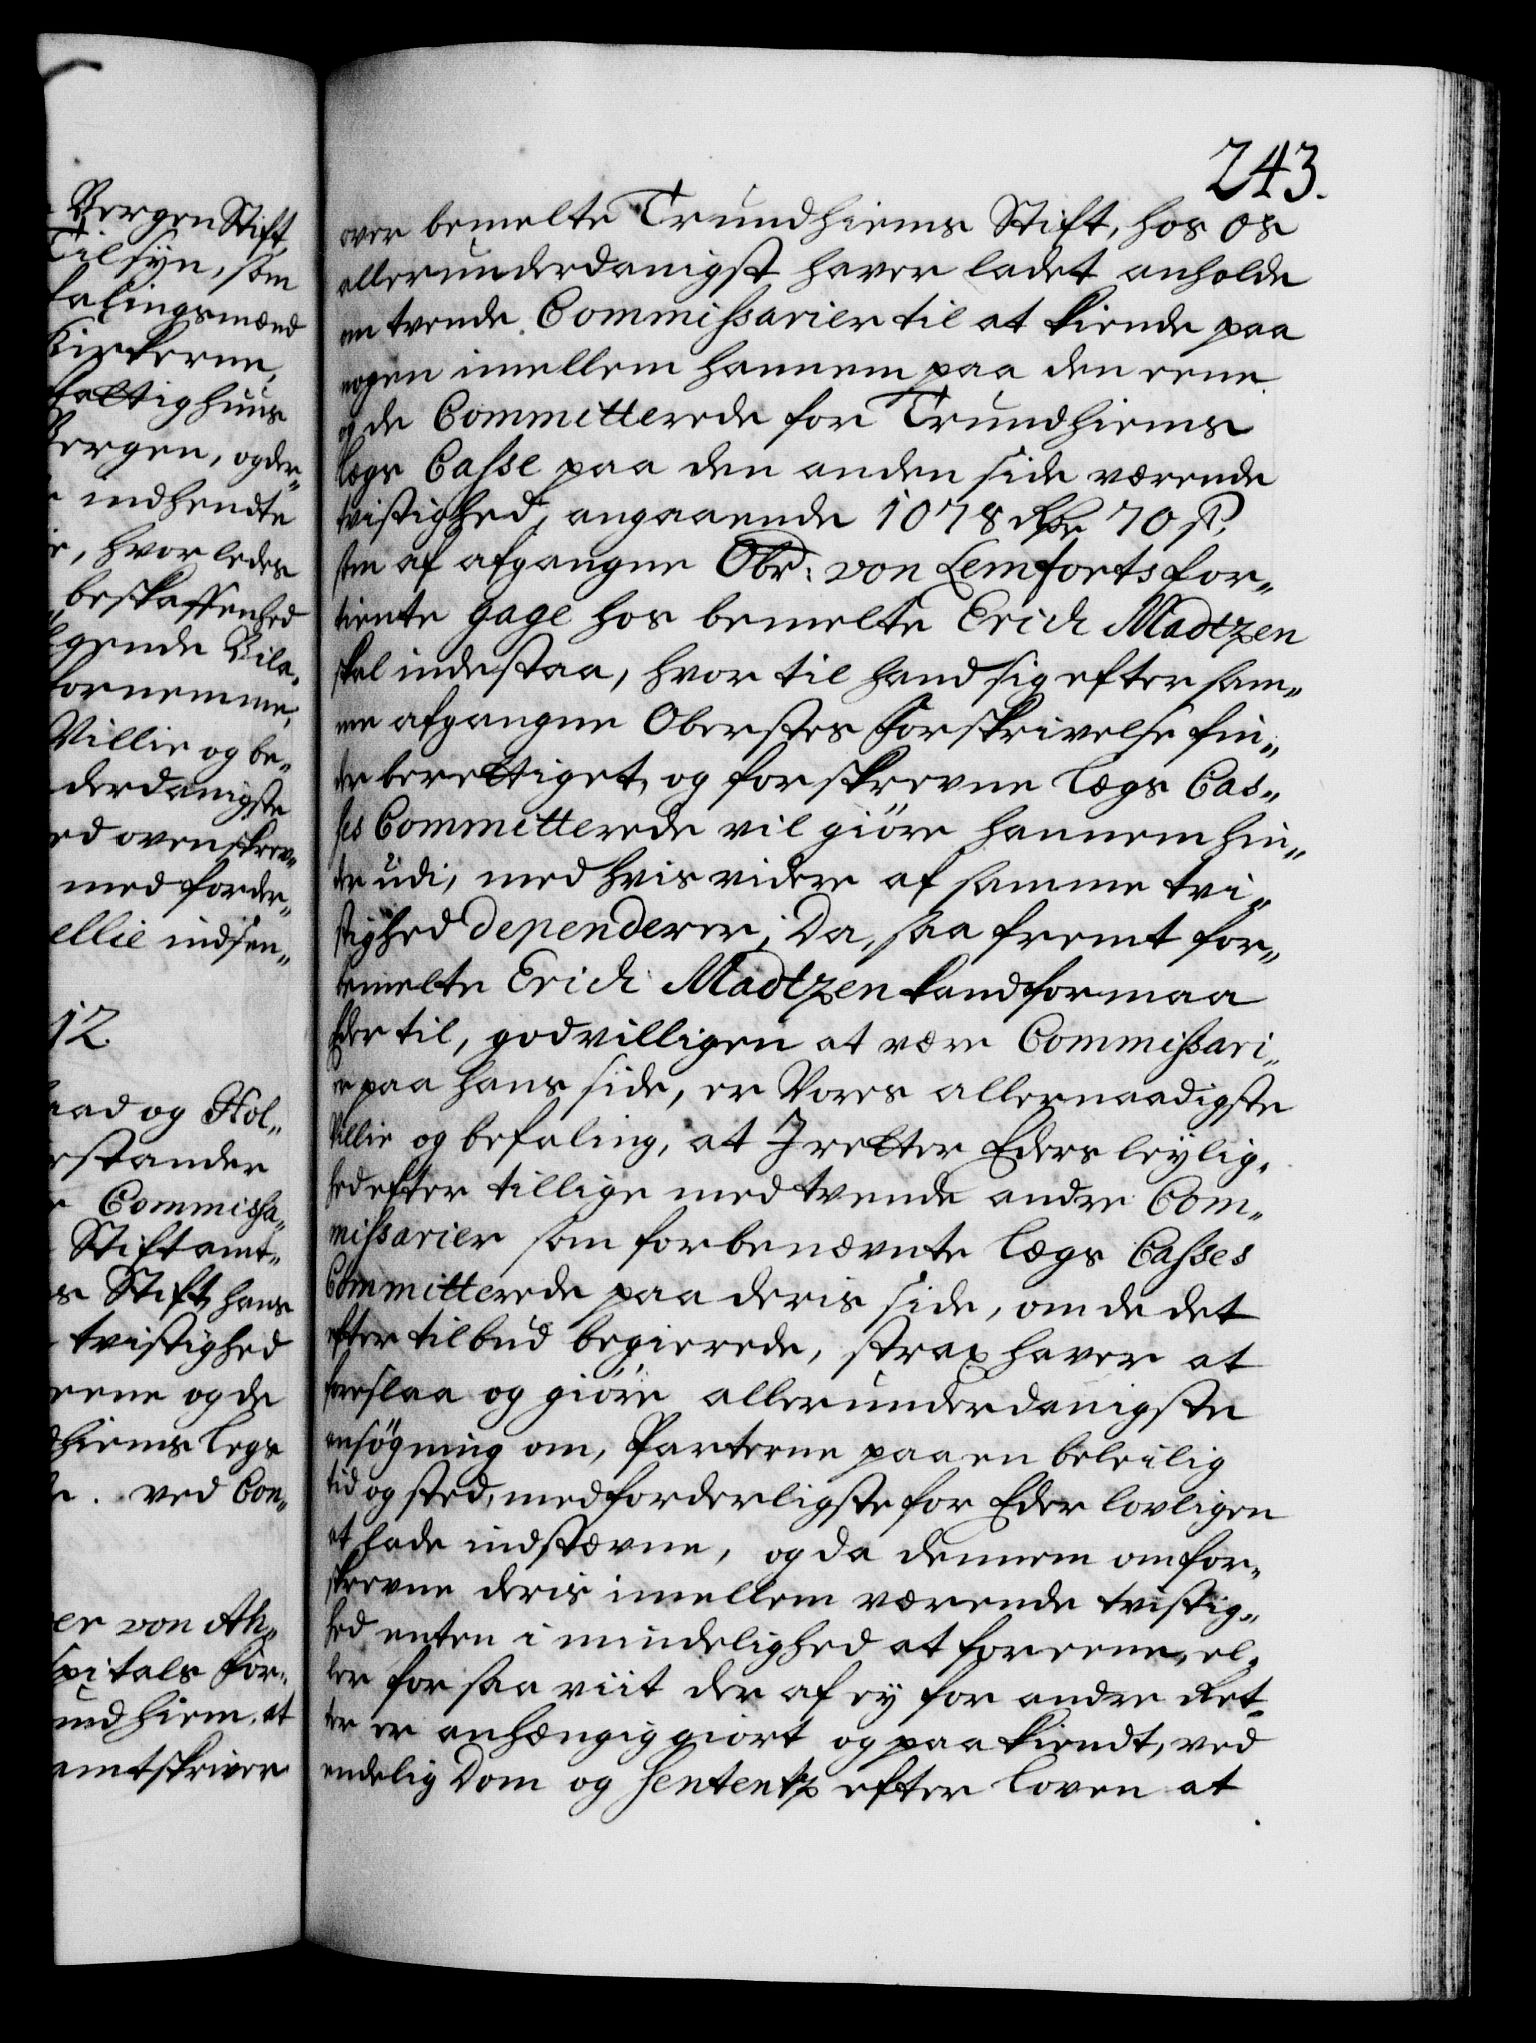 Bergen Stift
Tilsyn, som
falingsmænd
Kirkerne,
fattighuus
Bergen, og der„
indhendte
hvorledes
beskaffenhed
gende Bila„
fornemme,
Villie og be„
derdanigste
ed ovenskrev„
med forder„
ellie indsen„
12.
aad og Hol„
rstander
Commissa„
Stiftamt„
s Stift, hans
tvistighed
eene og de
dhiems legs
ved Con„
er von Ah„
spitals For„
undhiem, at
amtskriver
243.
over bemelte Trundhiems Stift, hos os
allerunderdanigst haver ladet anholde
om tvende Commissarier til at kiende paa
nogen imellem hannem paa den eene
og de Committerede for Trundhiems
Lægs Casse paa den anden side værende
tvistighed, angaaende 1078 Rdr 70 s.
som af afgangne Obr: von Lemforts for„
tiente gage hos bemelte Erich Madtzen
skal indestaa, hvor til hand sig efter sam„
me afgangne Oberstes Forskrivelse fin„
der berettiget, og forskrevne Lægs Cas„
ses Committerede vil giöre hannem hin„
der udi, med hvis videre af samme tvi„
stighed dependerer; Da, saa fremt for„
bemelte Erich Madtzen kand formaa
Eder til, godvilligen at være Commissari„
er paa hans side, er Vores allernaadigste
Villie og befaling, at I retter Eders leylig„
hed efter tillige med tvende andre Com„
missarier som forbenævnte Lægs Casses
Committerede paa deris side, om de det
efter tilbud begierede, strax haver at
foreslaa og giöre allerunderdanigste
ansögning om, Parterne paa en beleilig
tid og sted, med forderligste for Eder lovligen
at lade indstævne, og da dennem om for„
skrevne deris imellem værende tvistig„
hed enten i mindelighed at foreene, el„
ler for saa viit der af ey for andre Ret„
ter er anhængig giort og paakiendt, ved
endelig Dom og Sententz efter Loven at